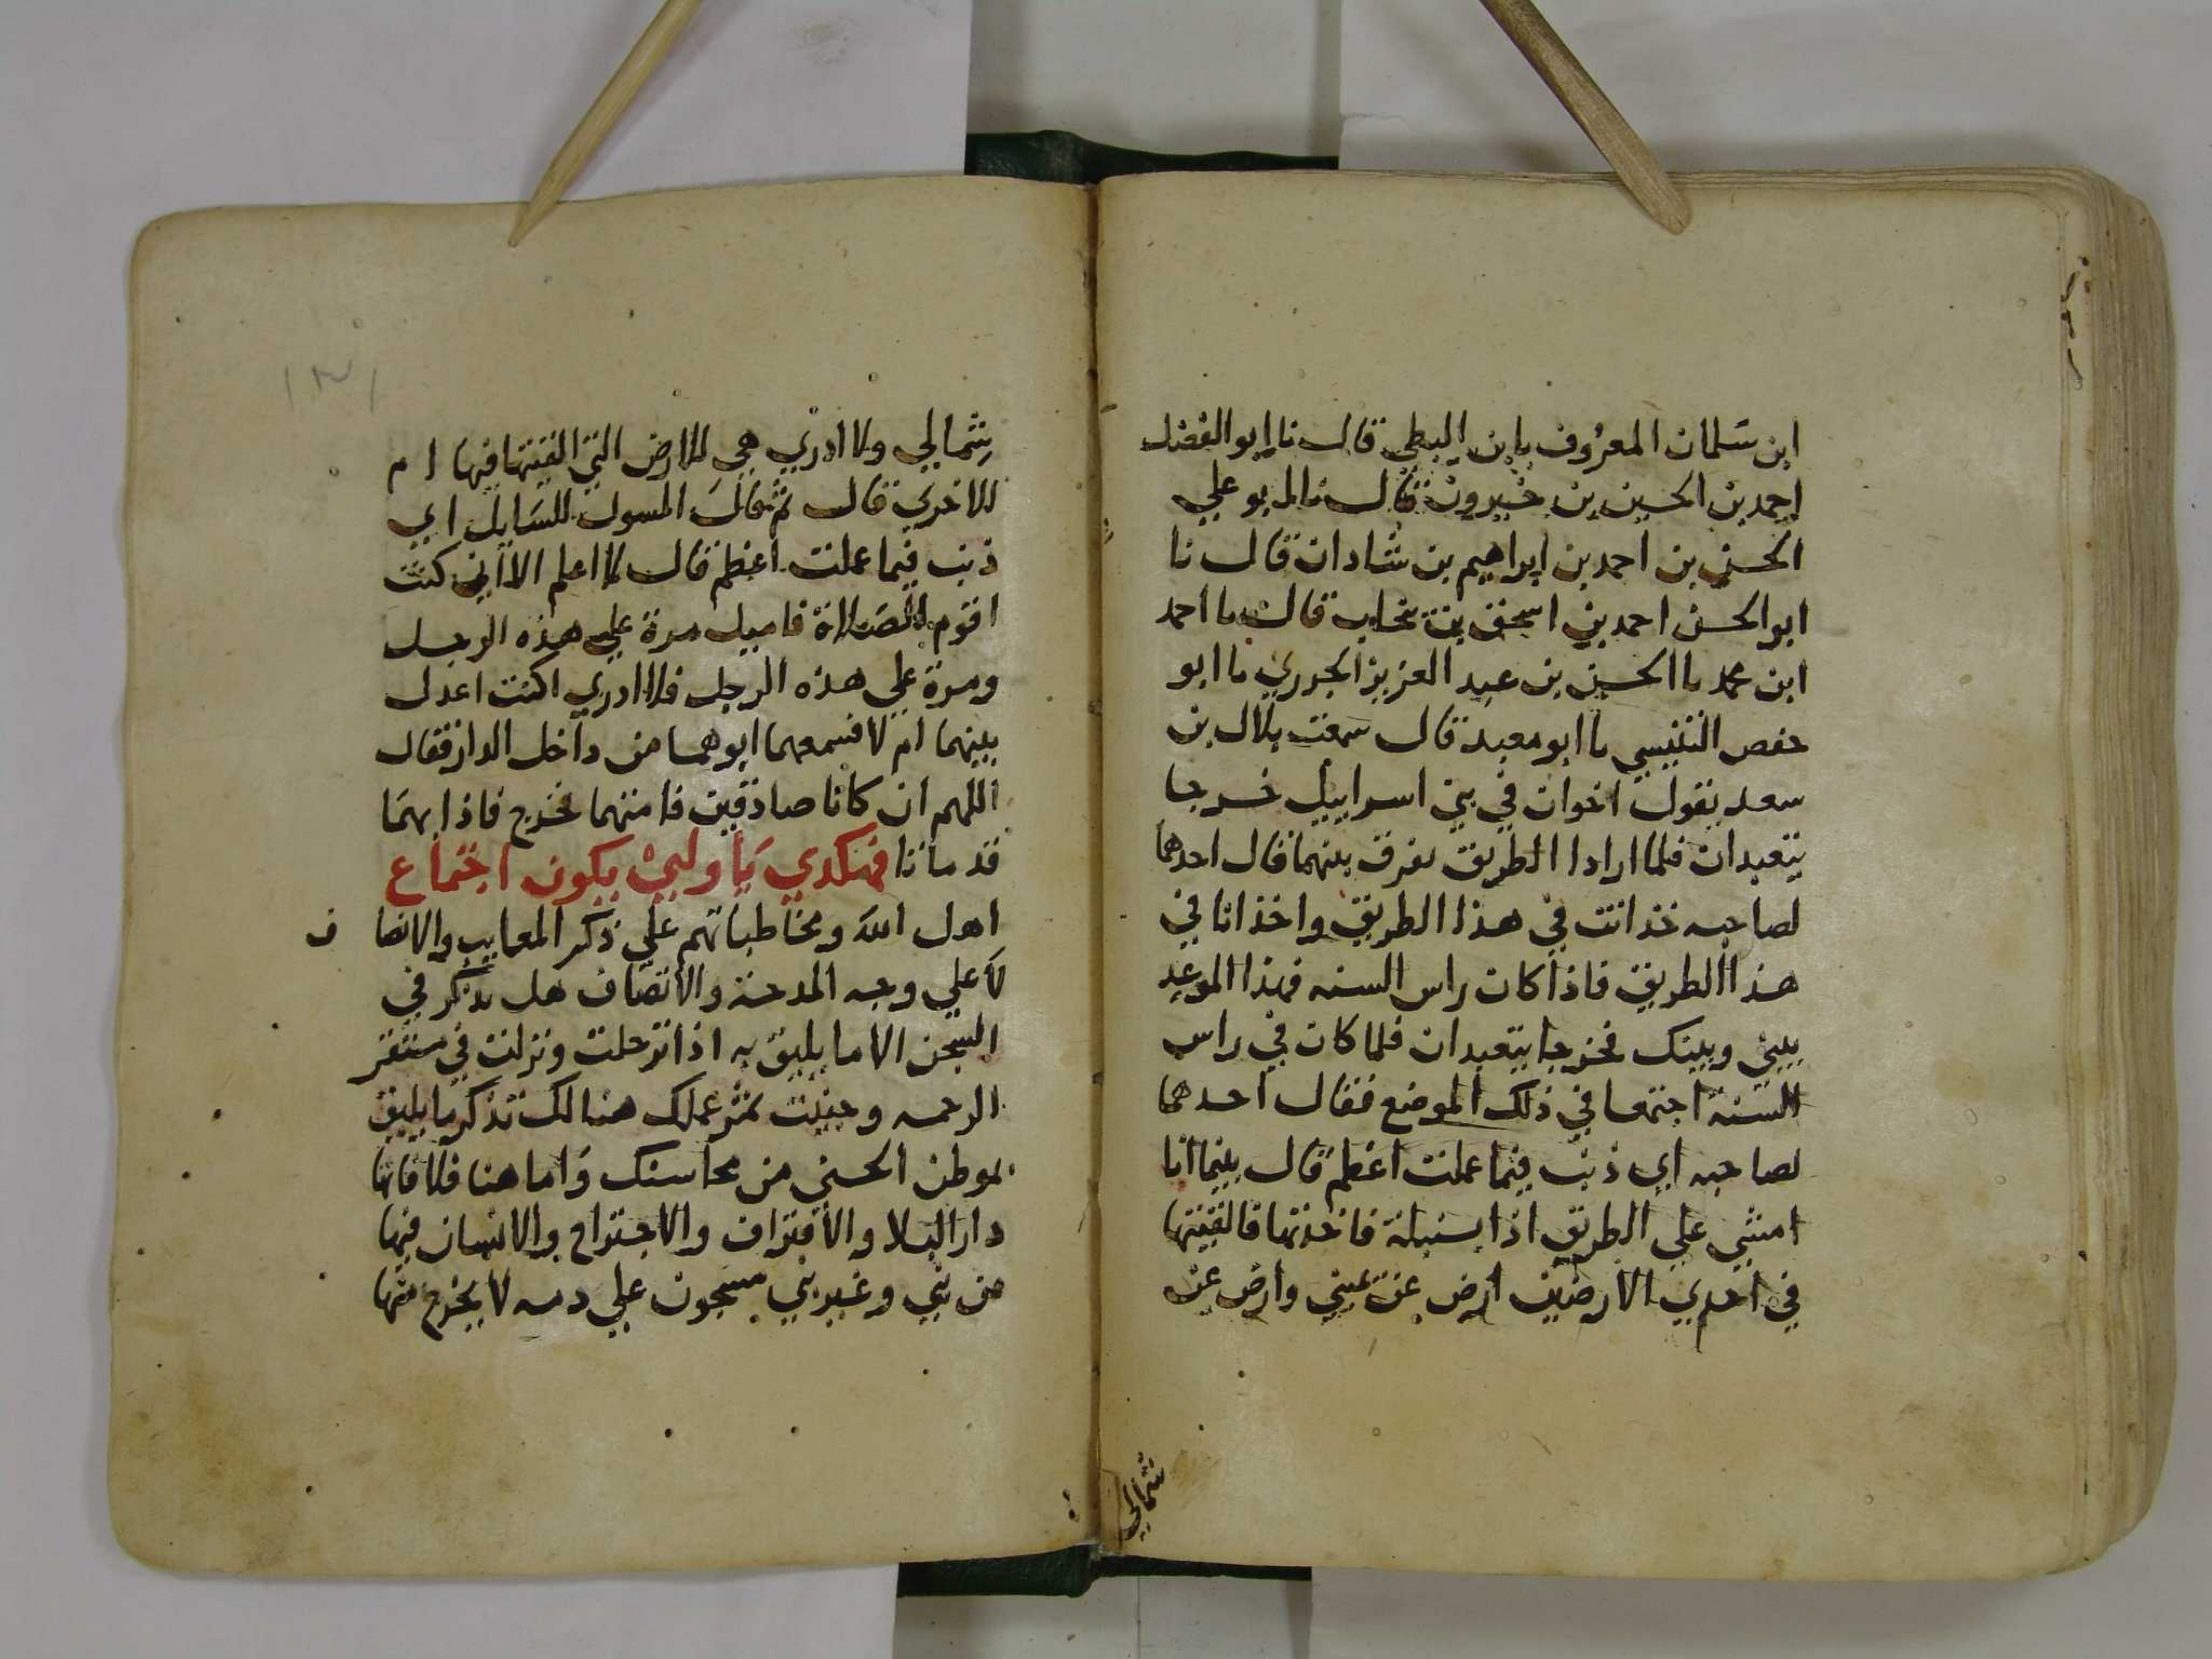 ابن سَلمان المعرُوف بابن البطي قال نا ابو الفضل
احمد بن الحسين بن خيرون قال نا ابو علي
الحسن بن احمد بن ابراهيم بن شادان قال نا
ابو الحسن احمد بن اسحق بن نيخاب قال نا احمد
ابن محمد نا الحسين بن عبد العزيز الجدري نا ابو
حفص التنيسي نا ابو معبد قال سمعت بلال بن
سعد يقول اخوان في بني اسراييل خرجا
يتعبدان فلما ارادا الطريق يفرق بينهما قال احدهما
لصاحبه خذ انت في هذا الطريق واخذ انا في
هذا الطريق فاذا كان راس السنه فهذا الموعد
بيني وبينك فخرجا يتعبدان فلما كان في راس
السنة اجتمعا في ذلك الموضع فقال احدهما
لصاحبه اي ذنب فيما عملت اعظم قال بينما انا
امشي علي الطريق اذا بسنبلة فاخذتها فالقيتها
في احدي الارضين ارض عن يميني وارض عن
شمالي
شِمالي ولا ادري هي الارض التي القيتها فيها ام
الاخري قال ثم قالَ المسول للسَايل اي
ذنب فيما عملت اعظم قال لا اعلم الا اني كنت
اقوم للصَلاة فاميل مرة علي هذه الرجل
ومرة علي هذه الرجل فلا ادري اكنت اعدل
بينهما ام لا فسمعهما ابوهما من داخل الدار فقال
اللهم ان كانا صادقين فامتهما فخرج فاذا بهمَا
قد ماتا فهكدي يَا ولييْ يكون اجتماع
اهل اللهَ ومخاطباتهم علي ذكر المعايب والانصاف
لا علي وجه المدحة والاتصَاف هل يذكر في
السجن الا ما يليق به اذا ترحلت ونزلت في مستقر
الرحمه وجنيت ثمر عملك هنالك تذكر ما يليق
بموطن الحسني من محاسنك وَاما هنا فلا فانها
دار البلا والاقتراف والاجتراح والانسان فيها
من نبي وغير نبي مسجون علي دمه لا يخرج منها
١٣١